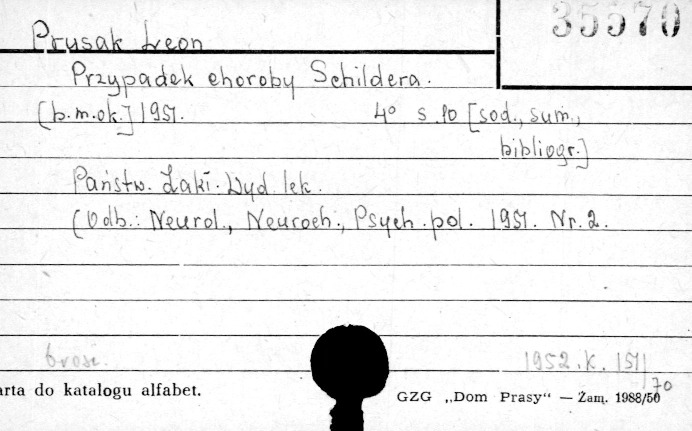 35570
Prusak Leon
Przypadek choroby Schildera.
[b.m.ok.] 1951. 4° s. 10 [sod., sum.,
bibliogr.]
Państw. Zakł. Wyd. lek.
(Odb.: Neurol., Neuroch., Psych. pol. 1951. Nr. 2.
brosz. 1952. K. 151/70
arta do katalogu alfabet.
GZG „Dom Prasy“ — Zam. 1988/50